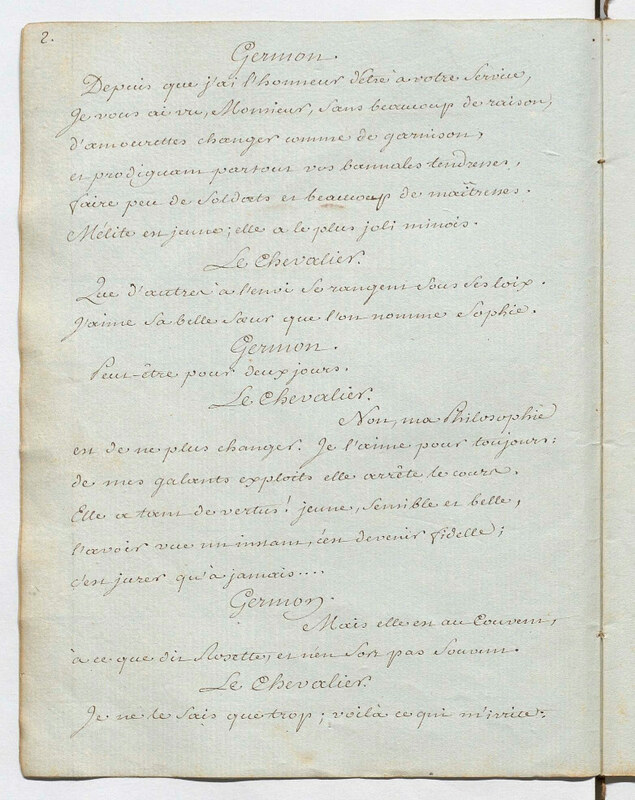 2.
Germon.
Depuis que j'ai l'honneur d'être à votre Service,
Je vous ai vu, Monsieur, Sans beaucoup de raison,
d'amourettes changer comme de garnison,
et prodiguant partout vos bannales tendresses,
faire peu de Soldats et beaucoup de maîtresses.
Mélite est jeune; elle a le plus joli minois.
Le Chevalier.
Que d'autres à l'envi Se rangent Sous Ses loix.
J'aime Sa belle Sœur que l'on nomme Sophie.
Germon.
Peut-être pour deux jours.
Le Chevalier.
Non, ma Philosophie
est de ne plus changer. Je l'aime pour toujours:
de mes galants exploits elle arrête le cours.
Elle a tant de vertus! jeune, Sensible et belle,
l'avoir vue un instant, c'est devenir fidelle;
c'est jurer qu'à jamais....
Germon.
Mais elle est au Couvent,
à ce que dit Rosette, et n'en Sort pas Souvent.
Le Chevalier.
Je ne le Sais que trop; voilà ce qui m'irrite: